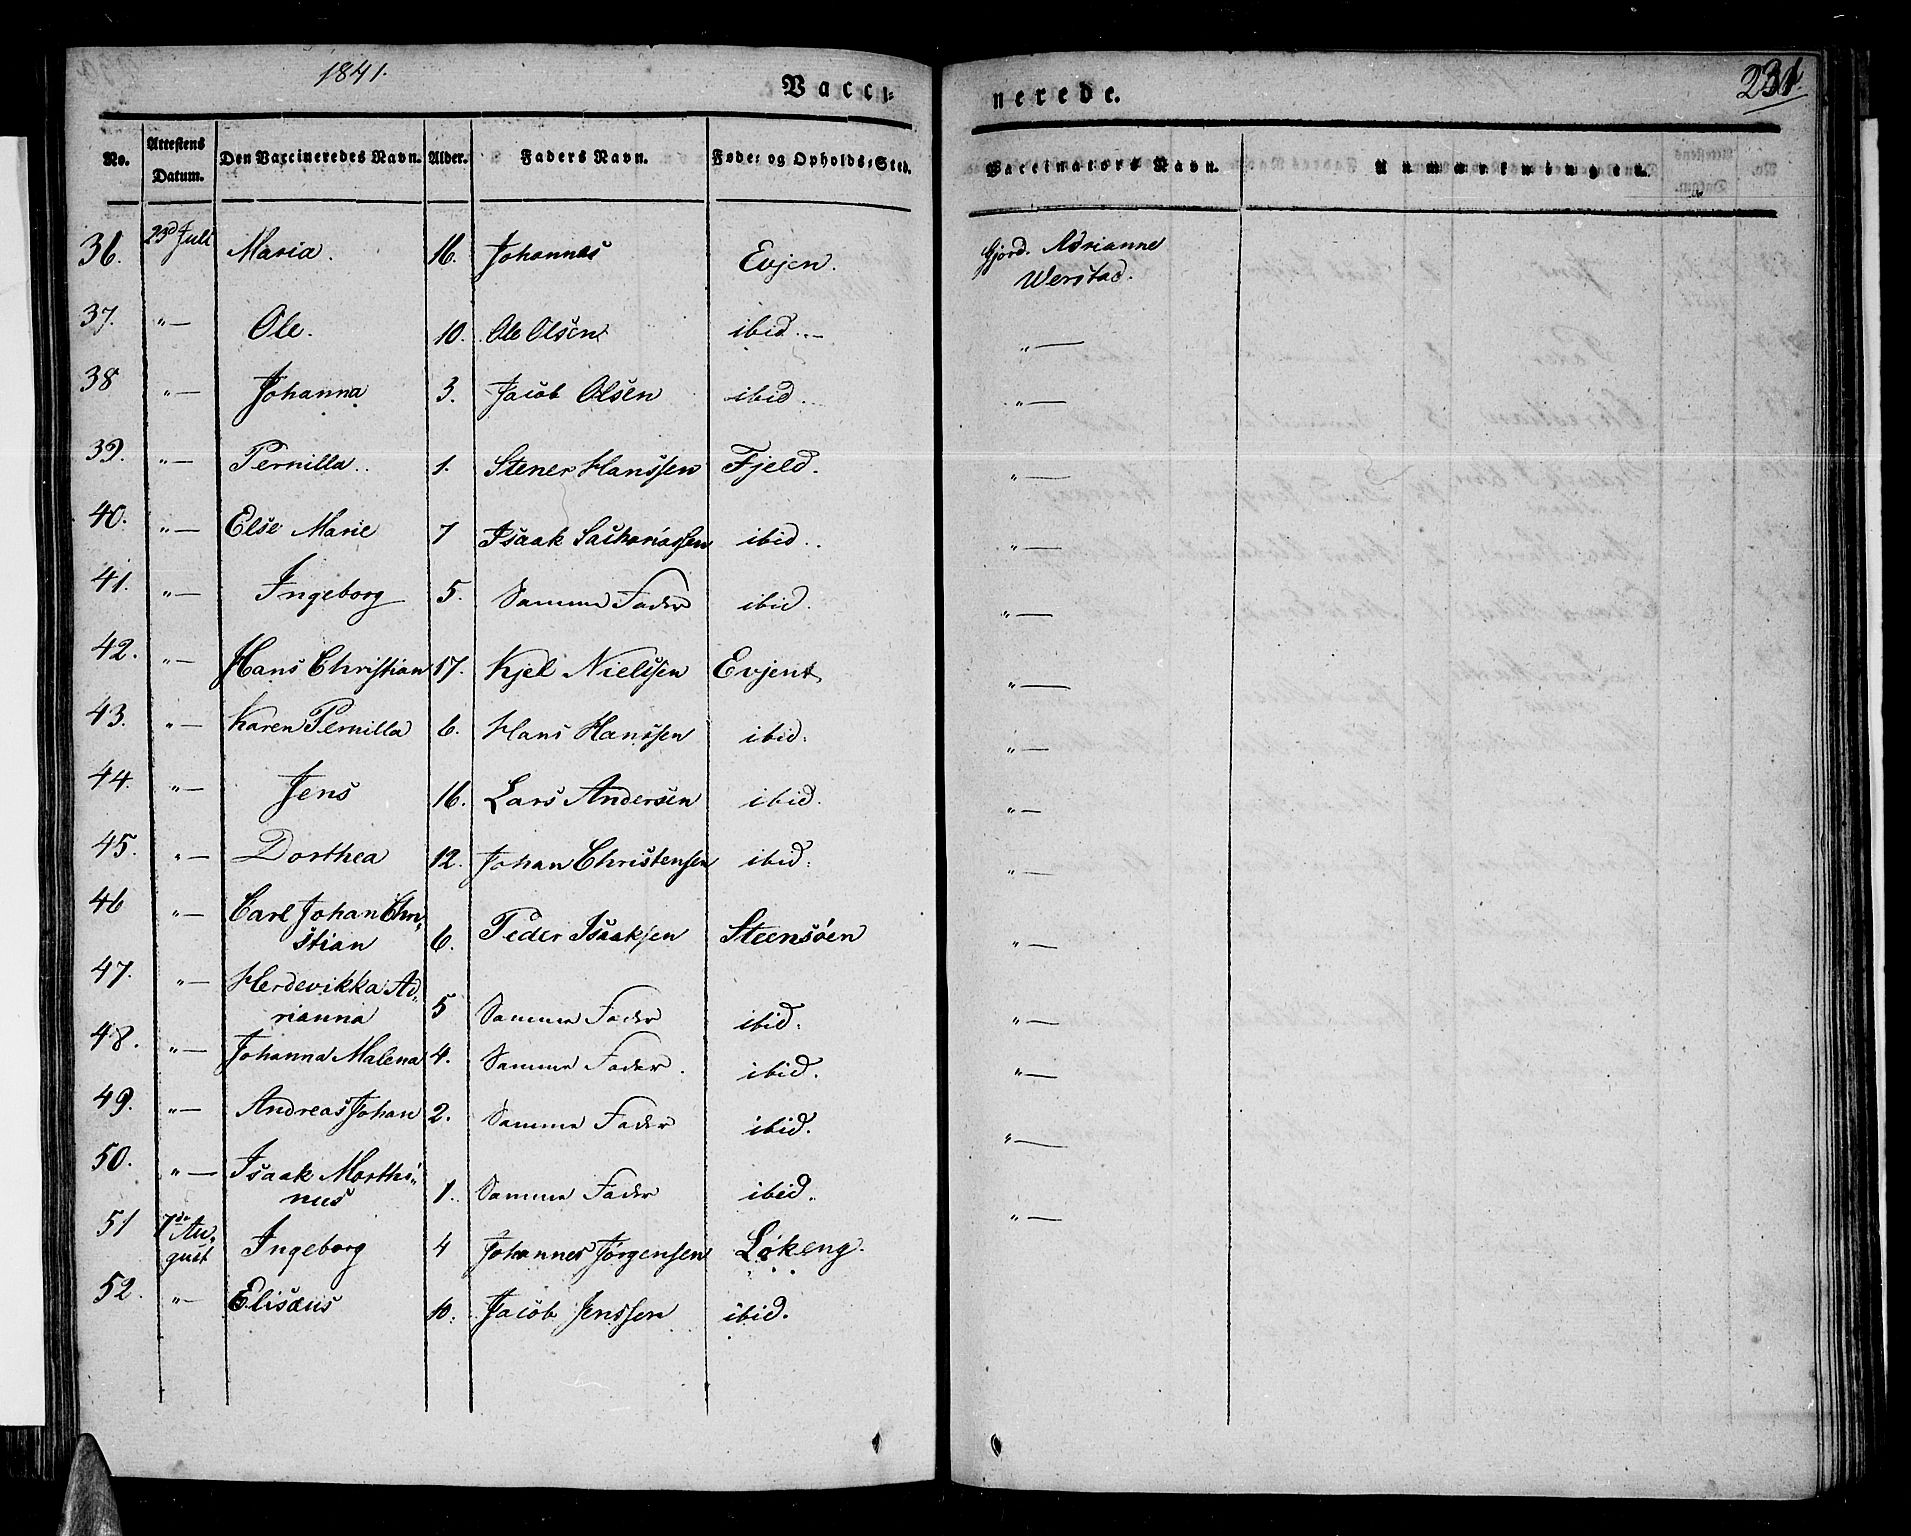 1841.
Vacci-
nerede.
231.
No. Attestens Datum. Den Vaccineredes Navn. Alder. Faders Navn. Føde- og Opholds-Sted. Vaccinators Navn. Anmærkninger.
36. 23d Juli Maria. 16. Johannes Evjen. Gjord. Adrianne
Werstad.
37. "— Ole. 10. Ole Olsen ibid. "—
38 "— Johanna 3. Jacob Olsen ibid "—
39. "— Pernilla. 1. Stener Hanssen Fjeld. "—
40. "— Else Marie 7 Isaak Sachariassen ibid. "—
41. "— Ingeborg 5. Samme Fader ibid. "—
42. "— Hans Christian 17. Kjel Nielssen Evjent "—
43. "— Karen Pernilla 6. Hans Hanssen ibid. "—
44. "— Jens 16. Lars Andersen ibid. "—
45. "— Dorthea 12. Johan Christensen ibid. "—
46 "— Carl Johan Chri-
stian 6. Peder Isaaksen Steensøen "—
47. "— Herdevikka Ad-
rianna 5 Samme Fader ibid. "—
48. "— Johanna Malena 4. Samme Fader. ibid. "—
49. "— Andreas Johan 2. Samme Fader ibid. "—
50. "— Isaak Marthi-
nus 1. Samme Fader ibid. "—
51 7de Au-
gust Ingeborg 4 Johannes Jørgensen Løkeng.
52. "— Elisæus 10. Jacob Jenssen ibid.